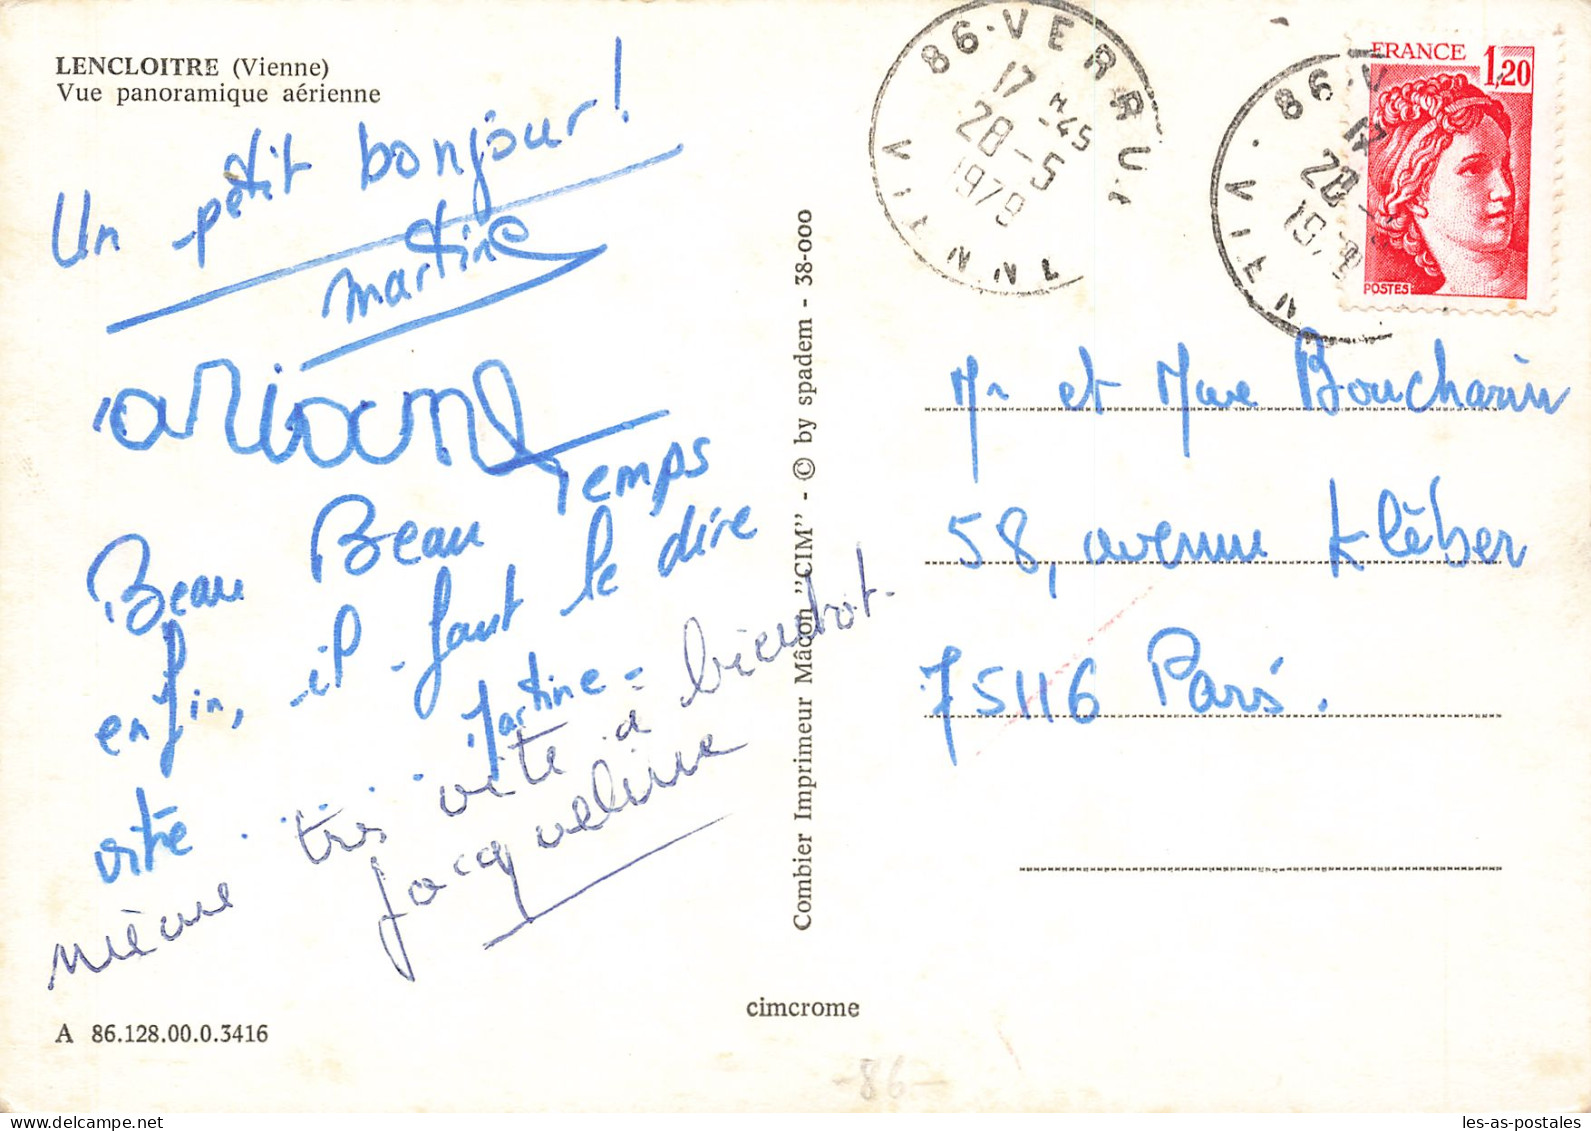 LENCLOITRE (Vienne)
Vue panoramique aérienne
Un petit bonjour !
martine
ariane
Beau Beau Temps
enfin, il faut le dire
vite....... Martine =
même très vite à bientôt.
Jacqueline
A 86.128.00.0.3416
Combier Imprimeur Mâcon "CIM" - © by spadem - 38-000
cimcrome
-86-
86-VERRU
17 H 45
28-5
1979
VIENN
86-V
17
28
197
VIENN
FRANCE 1,20
POSTES
Mr et Mme Boucharin
58, avenue Kléber
75116 Paris.
les-as-postales